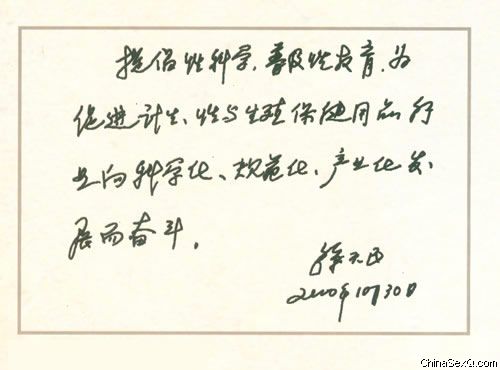 提倡性科学,普及性教育,为
促进计生、性与生殖保健用品行
业向科学化、规范化、产业化发
展而奋斗。
徐天民
2000年10月30日
ChinaSexQ.com